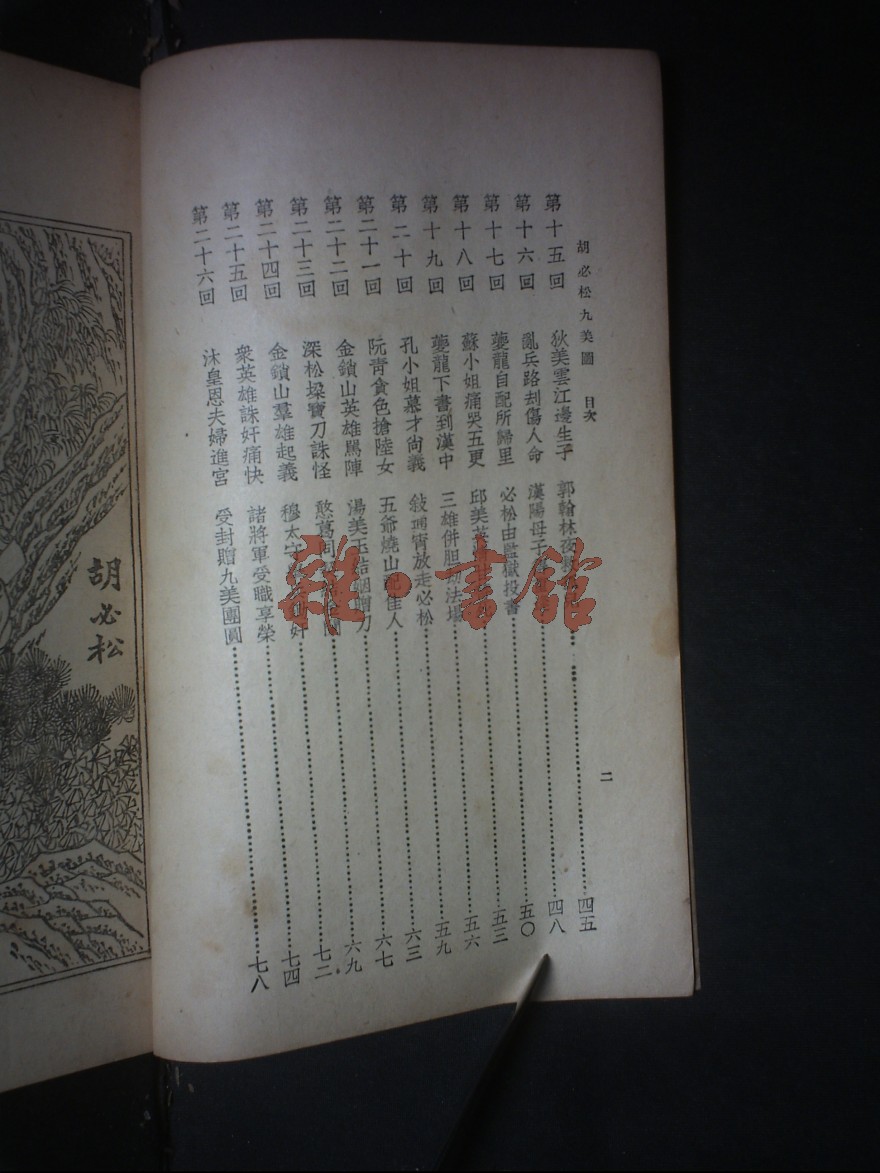 胡必松九美圖 目次
二
第十五回 狄美雲江邊生子 郭翰林夜 四五
第十六回 亂兵路刦傷人命 漢陽母子 四八
第十七回 夔龍自配所歸里 必松由監獄投書 五〇
第十八回 蘇小姐痛哭五更 邱美英 五三
第十九回 夔龍下書到漢中 三雄併胆劫法場 五六
第二十回 孔小姐慕才尚義 敍通宵放走必松 五九
第二十一回 阮靑貪色搶陸女 五爺燒山配佳人 六三
第二十二回 金鎖山英雄駡陣 湯美玉結姻贈刀 六七
第二十三回 深松墚寶刀誅怪 憨萬同 六九
第二十四回 金鎖山羣雄起義 穆太守 奸 七二
第二十五回 衆英雄誅奸痛快 諸將軍受職享榮 七四
第二十六回 沐皇恩夫婦進宮 受封贈九美團圓 七八
胡必松
雜·書館